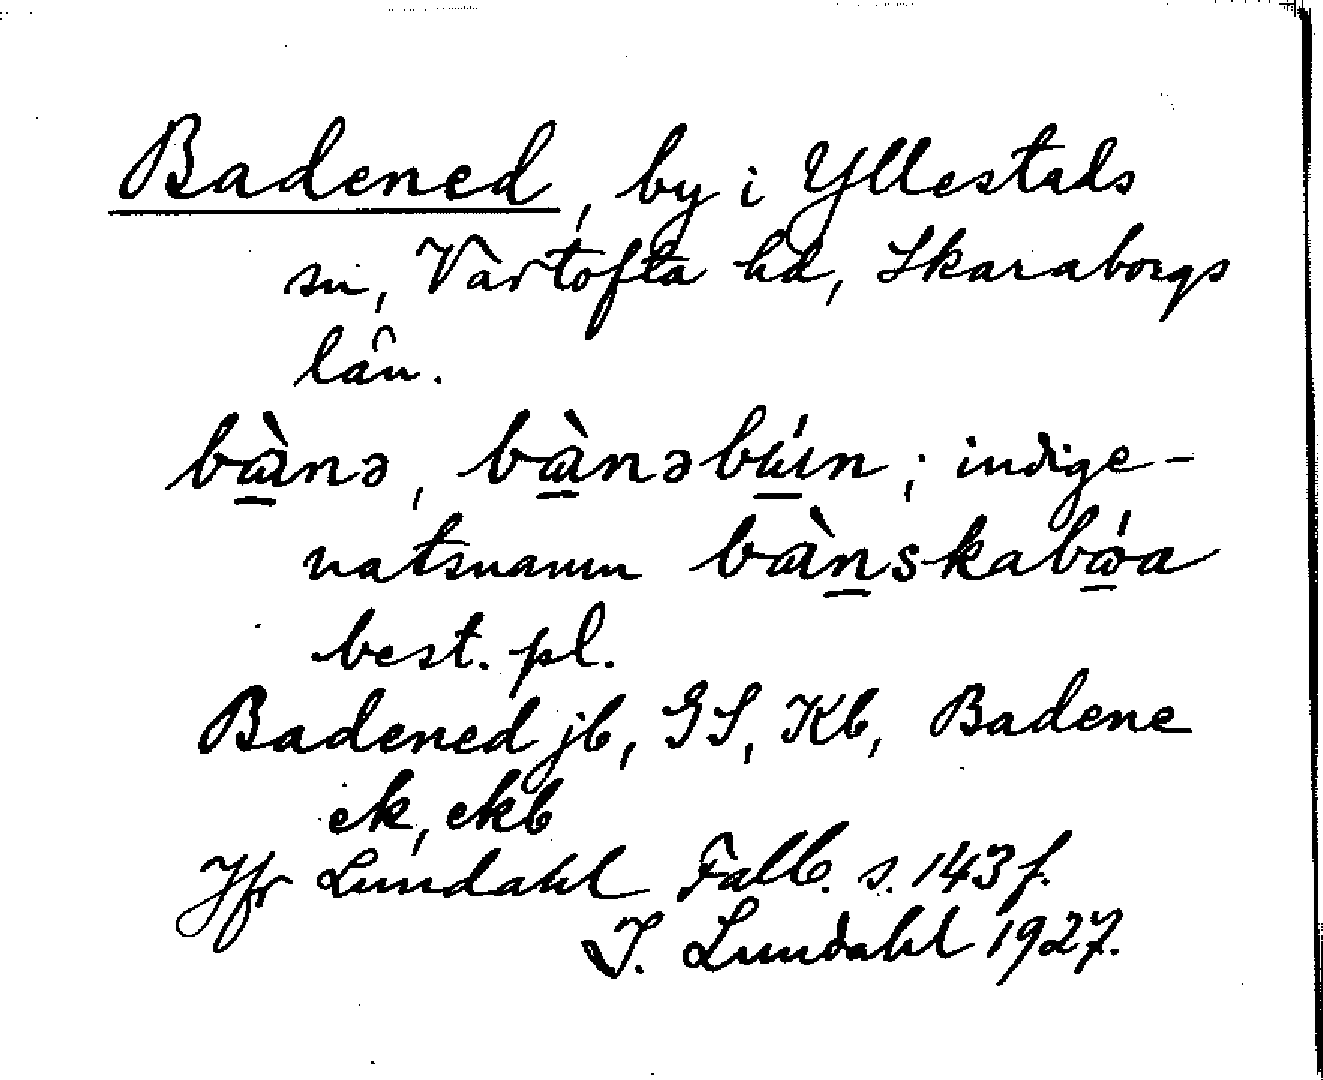 Badened, by i Yllestads
sn, Vartofta hd, Skaraborgs
län.
bànə, bànəbýn; indige-
natsnamn bànskabóa
best. pl.
Badened jb, GS, Kb, Badene
ek, ekb
Jfr Lundahl Falb. s. 143 f.
I. Lundahl 1927.